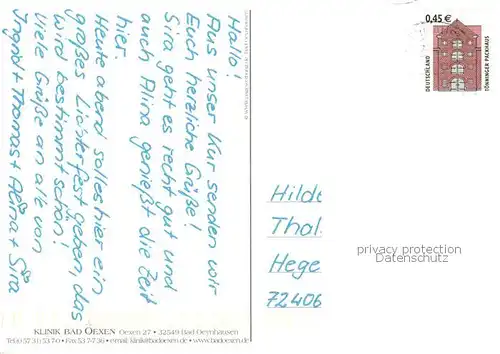 Hallo!
Aus unser Kur senden wir
Euch herzliche Grüße!
Sira geht es recht gut und
auch Alina genießt die Zeit
hier.
Heute abend soll es hier ein
großes Lichterfest geben, das
wird bestimmt schön!
Viele Grüße an alle von
Ingrid + Thomas + Alina + Sira
KLINIK BAD OEXEN Oexen 27 • 32549 Bad Oeynhausen
Tel. 0 57 31/ 53 7-0 • Fax 53 7-7 36 • email: klinik@badoexen.de • www.badoexen.de
0,45 €
DEUTSCHLAND
TÖNNINGER PACKHAUS
Hilde
Thal
Hege
72406
privacy protection
Datenschutz